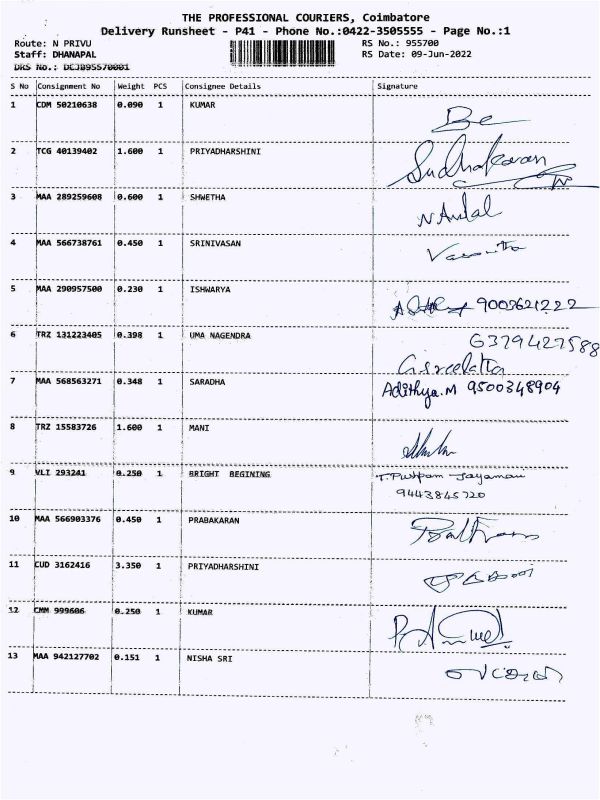 THE PROFESSIONAL COURIERS, Coimbatore
Delivery Runsheet - P41 - Phone No.:0422-3505555 - Page No.:1
Route: N PRIVU RS No.: 955700
Staff: DHANAPAL RS Date: 09-Jun-2022
DRS No.: DCJB95570001
S No Consignment No Weight PCS Consignee Details Signature
1 CDM 50210638 0.090 1 KUMAR
2 TCG 40139402 1.600 1 PRIYADHARSHINI Sudhakaran
3 MAA 289259608 0.600 1 SHWETHA
4 MAA 566738761 0.450 1 SRINIVASAN
5 MAA 290957500 0.230 1 ISHWARYA 9003621222
6 TRZ 131223405 0.398 1 UMA NAGENDRA 6379427588
G.Sreelatha
7 MAA 568563271 0.348 1 SARADHA Adithya.M 9500348904
8 TRZ 15583726 1.600 1 MANI
9 VLI 293241 0.250 1 BRIGHT BEGINING T.Pushpam Jayamani
9443845720
10 MAA 566903376 0.450 1 PRABAKARAN
11 CUD 3162416 3.350 1 PRIYADHARSHINI
12 CMM 999606 0.250 1 KUMAR
13 MAA 942127702 0.151 1 NISHA SRI